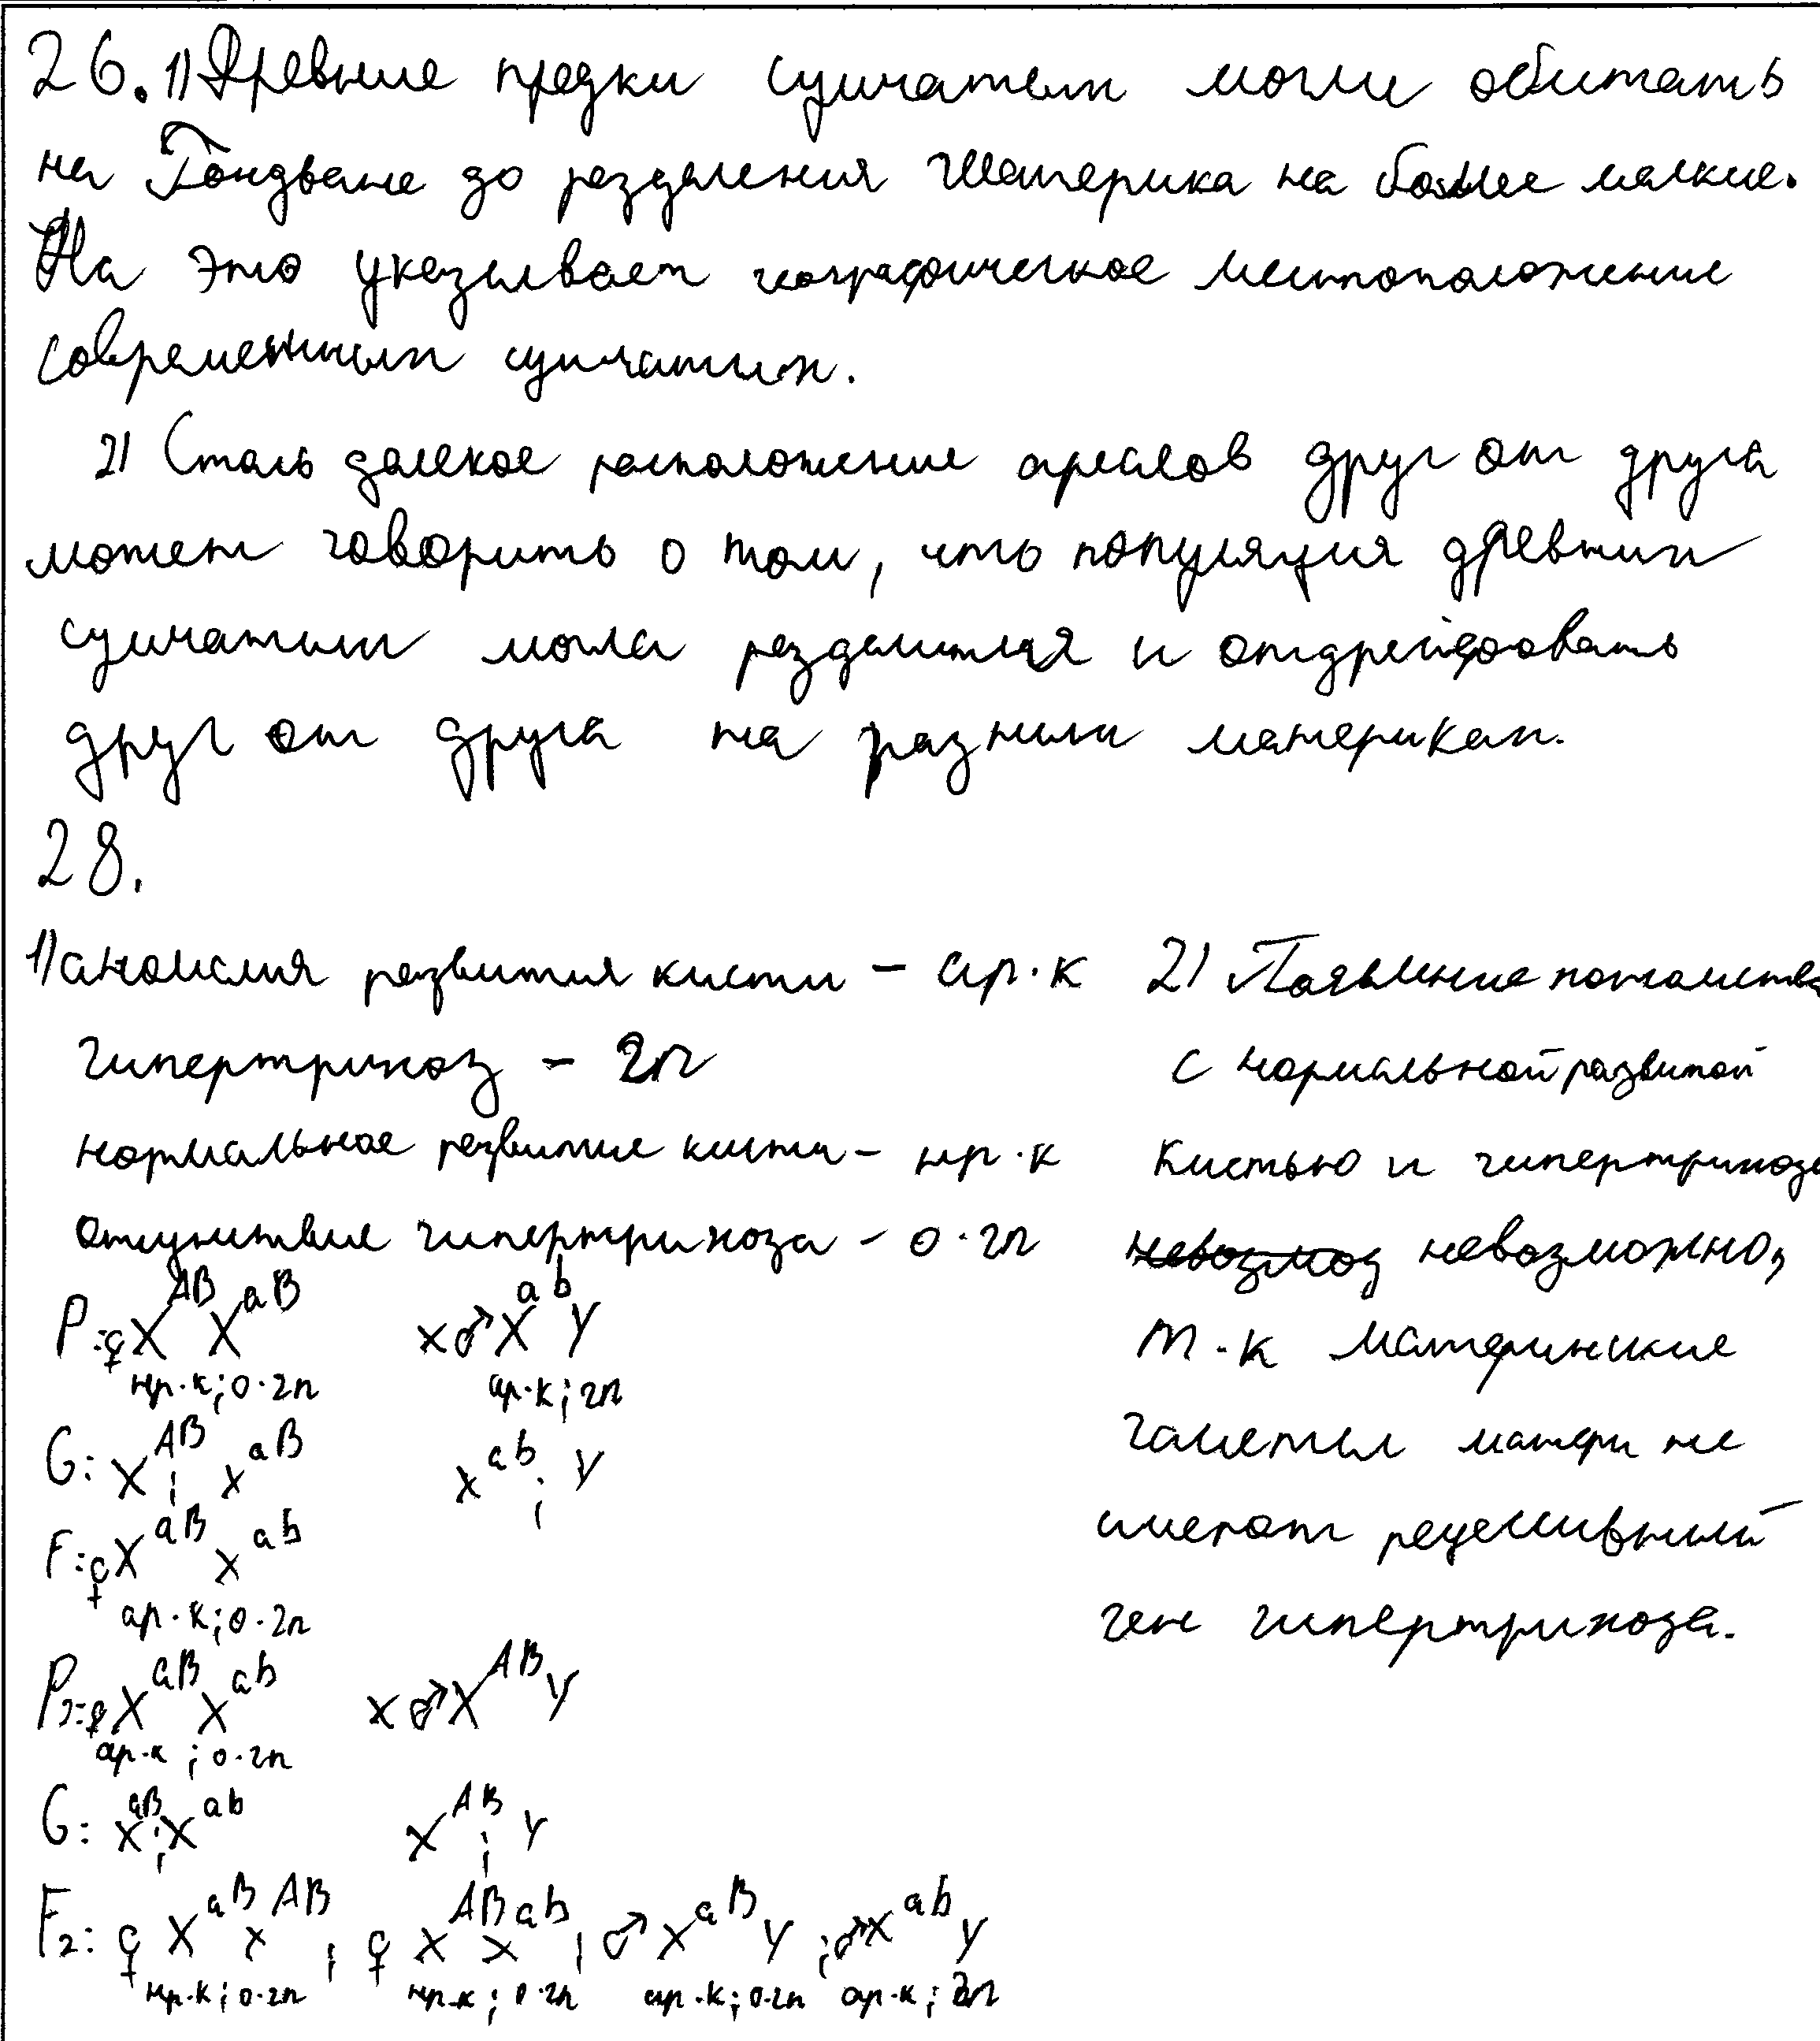 26. 1) Древние предки сумчатых могли обитать
на Гондване до разделения материка на более мелкие.
На это указывает географическое местоположение
современных сумчатых.
2) Столь далекое расположение ареалов друг от друга
может говорить о том, что популяция древних
сумчатых могла разделится и отдрейфовать
друг от друга на разных материках.
28.
1) аномалия развития кисти - ар.к
гипертрихоз - гп
нормальное развитие кисти - нр.к
отсутствие гипертрихоза - о.гп
P: ♀X^AB X^aB x ♂X^ab Y
нр.к; о.гп ар.к; гп
G: X^AB; X^aB X^ab; Y
F: ♀X^aB X^ab
ар.к; о.гп
P2: ♀X^aB X^ab x ♂X^AB Y
ар.к; о.гп
G: X^aB; X^ab X^AB; Y
F2: ♀ X^aB X^AB; ♀ X^AB X^ab; ♂ X^aB Y; ♂X^ab Y
нр.к; о.гп нр.к; о.гп ар.к; о.гп ар.к; гп
2) Появление потомства
с нормальной развитой
кистью и гипертрихоза
невозможно,
т.к материнские
гаметы матери не
имеют рецессивный
ген гипертрихоза.